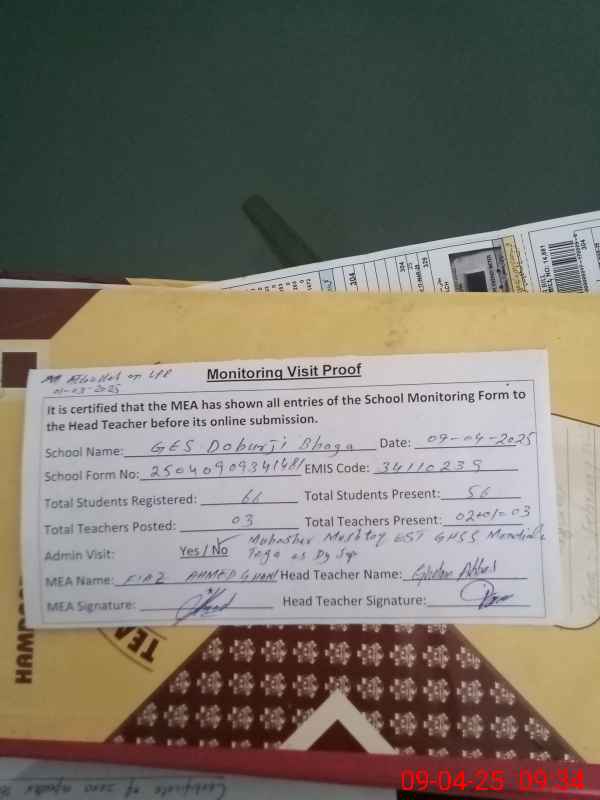 on LPR
01-03-2025
Monitoring Visit Proof
It is certified that the MEA has shown all entries of the School Monitoring Form to
the Head Teacher before its online submission.
School Name: GES Doburji Bhoga Date: 09-04-2025
School Form No: EMIS Code: 34110239
Total Students Registered: 66 Total Students Present: 56
Total Teachers Posted: 03 Total Teachers Present: 02+01=03
Admin Visit: Yes / No Mubasher Mushtaq EST GHSS
as Dy
MEA Name: FIAZ AHMED GHANI Head Teacher Name: Ghulam Abbas
MEA Signature: Head Teacher Signature:
HAMD
TEA
Certificate of zero
09-04-25 09:34